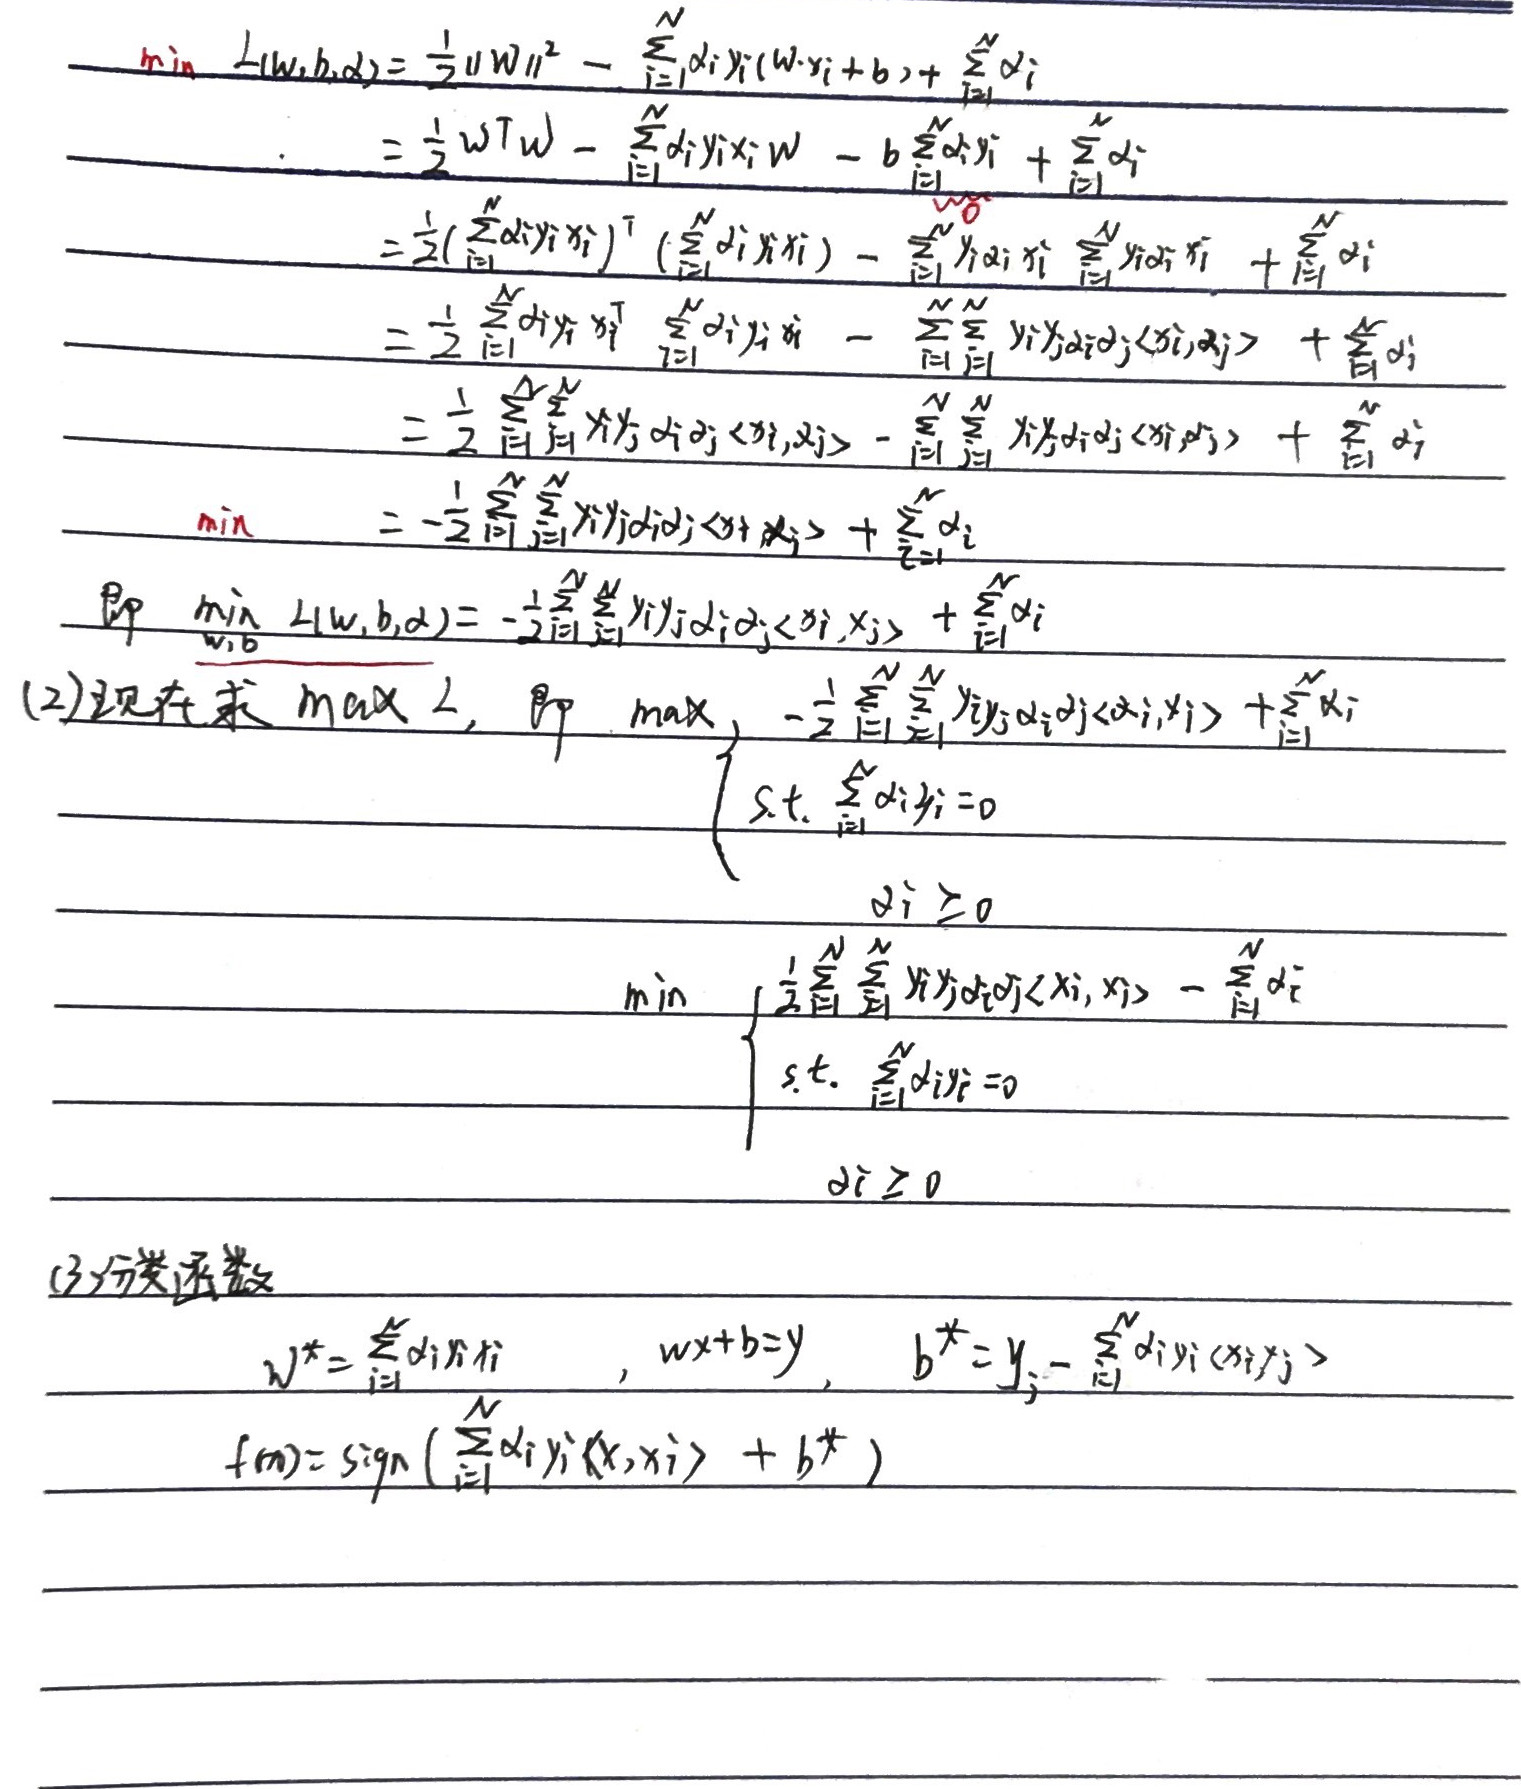 min L(w,b,α) = 1/2 ||W||² − ∑_{i=1}^{N} α_i y_i (W·x_i + b) + ∑_{i=1}^{N} α_i
= 1/2 W^T W − ∑_{i=1}^{N} α_i y_i x_i W − b ∑_{i=1}^{N} α_i y_i + ∑_{i=1}^{N} α_i
0
= 1/2 (∑_{i=1}^{N} α_i y_i x_i)^T (∑_{i=1}^{N} α_i y_i x_i) − ∑_{i=1}^{N} y_i α_i x_i ∑_{i=1}^{N} y_i α_i x_i + ∑_{i=1}^{N} α_i
= 1/2 ∑_{i=1}^{N} α_i y_i x_i^T ∑_{i=1}^{N} α_i y_i x_i − ∑_{i=1}^{N} ∑_{j=1}^{N} y_i y_j α_i α_j <x_i, x_j> + ∑_{i=1}^{N} α_i
= 1/2 ∑_{i=1}^{N} ∑_{j=1}^{N} y_i y_j α_i α_j <x_i, x_j> − ∑_{i=1}^{N} ∑_{j=1}^{N} y_i y_j α_i α_j <x_i, x_j> + ∑_{i=1}^{N} α_i
min = −1/2 ∑_{i=1}^{N} ∑_{j=1}^{N} y_i y_j α_i α_j <x_i, x_j> + ∑_{i=1}^{N} α_i
即 min_{w,b} L(w,b,α) = −1/2 ∑_{i=1}^{N} ∑_{j=1}^{N} y_i y_j α_i α_j <x_i, x_j> + ∑_{i=1}^{N} α_i
(2)现在求 max L, 即 max, −1/2 ∑_{i=1}^{N} ∑_{j=1}^{N} y_i y_j α_i α_j <x_i, x_j> + ∑_{i=1}^{N} α_i
s.t. ∑_{i=1}^{N} α_i y_i = 0
α_i ≥ 0
min { 1/2 ∑_{i=1}^{N} ∑_{j=1}^{N} y_i y_j α_i α_j <x_i, x_j> − ∑_{i=1}^{N} α_i
s.t. ∑_{i=1}^{N} α_i y_i = 0
α_i ≥ 0
(3)分类函数
W* = ∑_{i=1}^{N} α_i y_i x_i , wx+b=y , b* = y_j − ∑_{i=1}^{N} α_i y_i <x_i, x_j>
f(x) = sign ( ∑_{i=1}^{N} α_i y_i <x, x_i> + b* )